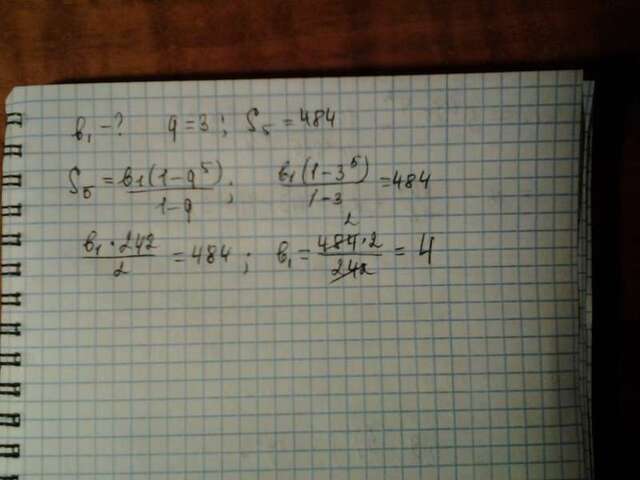 b₁ - ? q = 3; S₅ = 484
S₅ = b₁(1-q⁵)/1-q; b₁(1-3⁵)/1-3 = 484
b₁·242/2 = 484; b₁ = 484·2/242 = 4